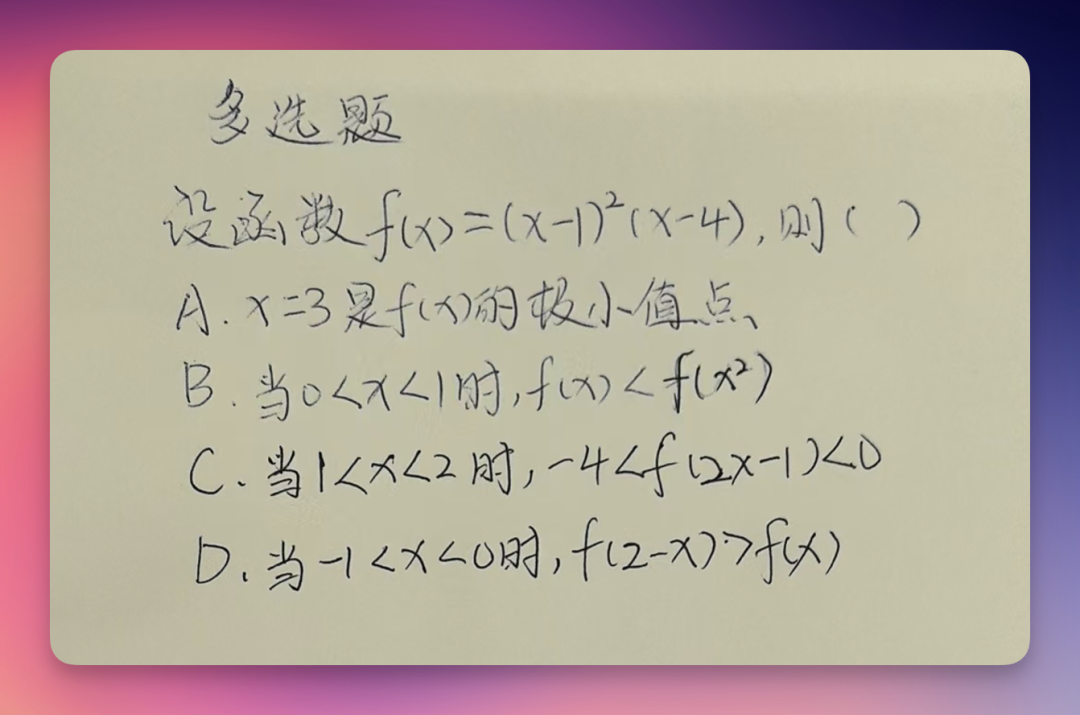 多选题
设函数f(x)=(x-1)²(x-4),则( )
A.x=3是f(x)的极小值点
B.当0<x<1时,f(x)<f(x²)
C.当1<x<2时,-4<f(2x-1)<0
D.当-1<x<0时,f(2-x)>f(x)